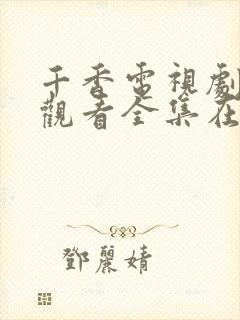 千香電視劇
觀看全集在
鄧麗婧